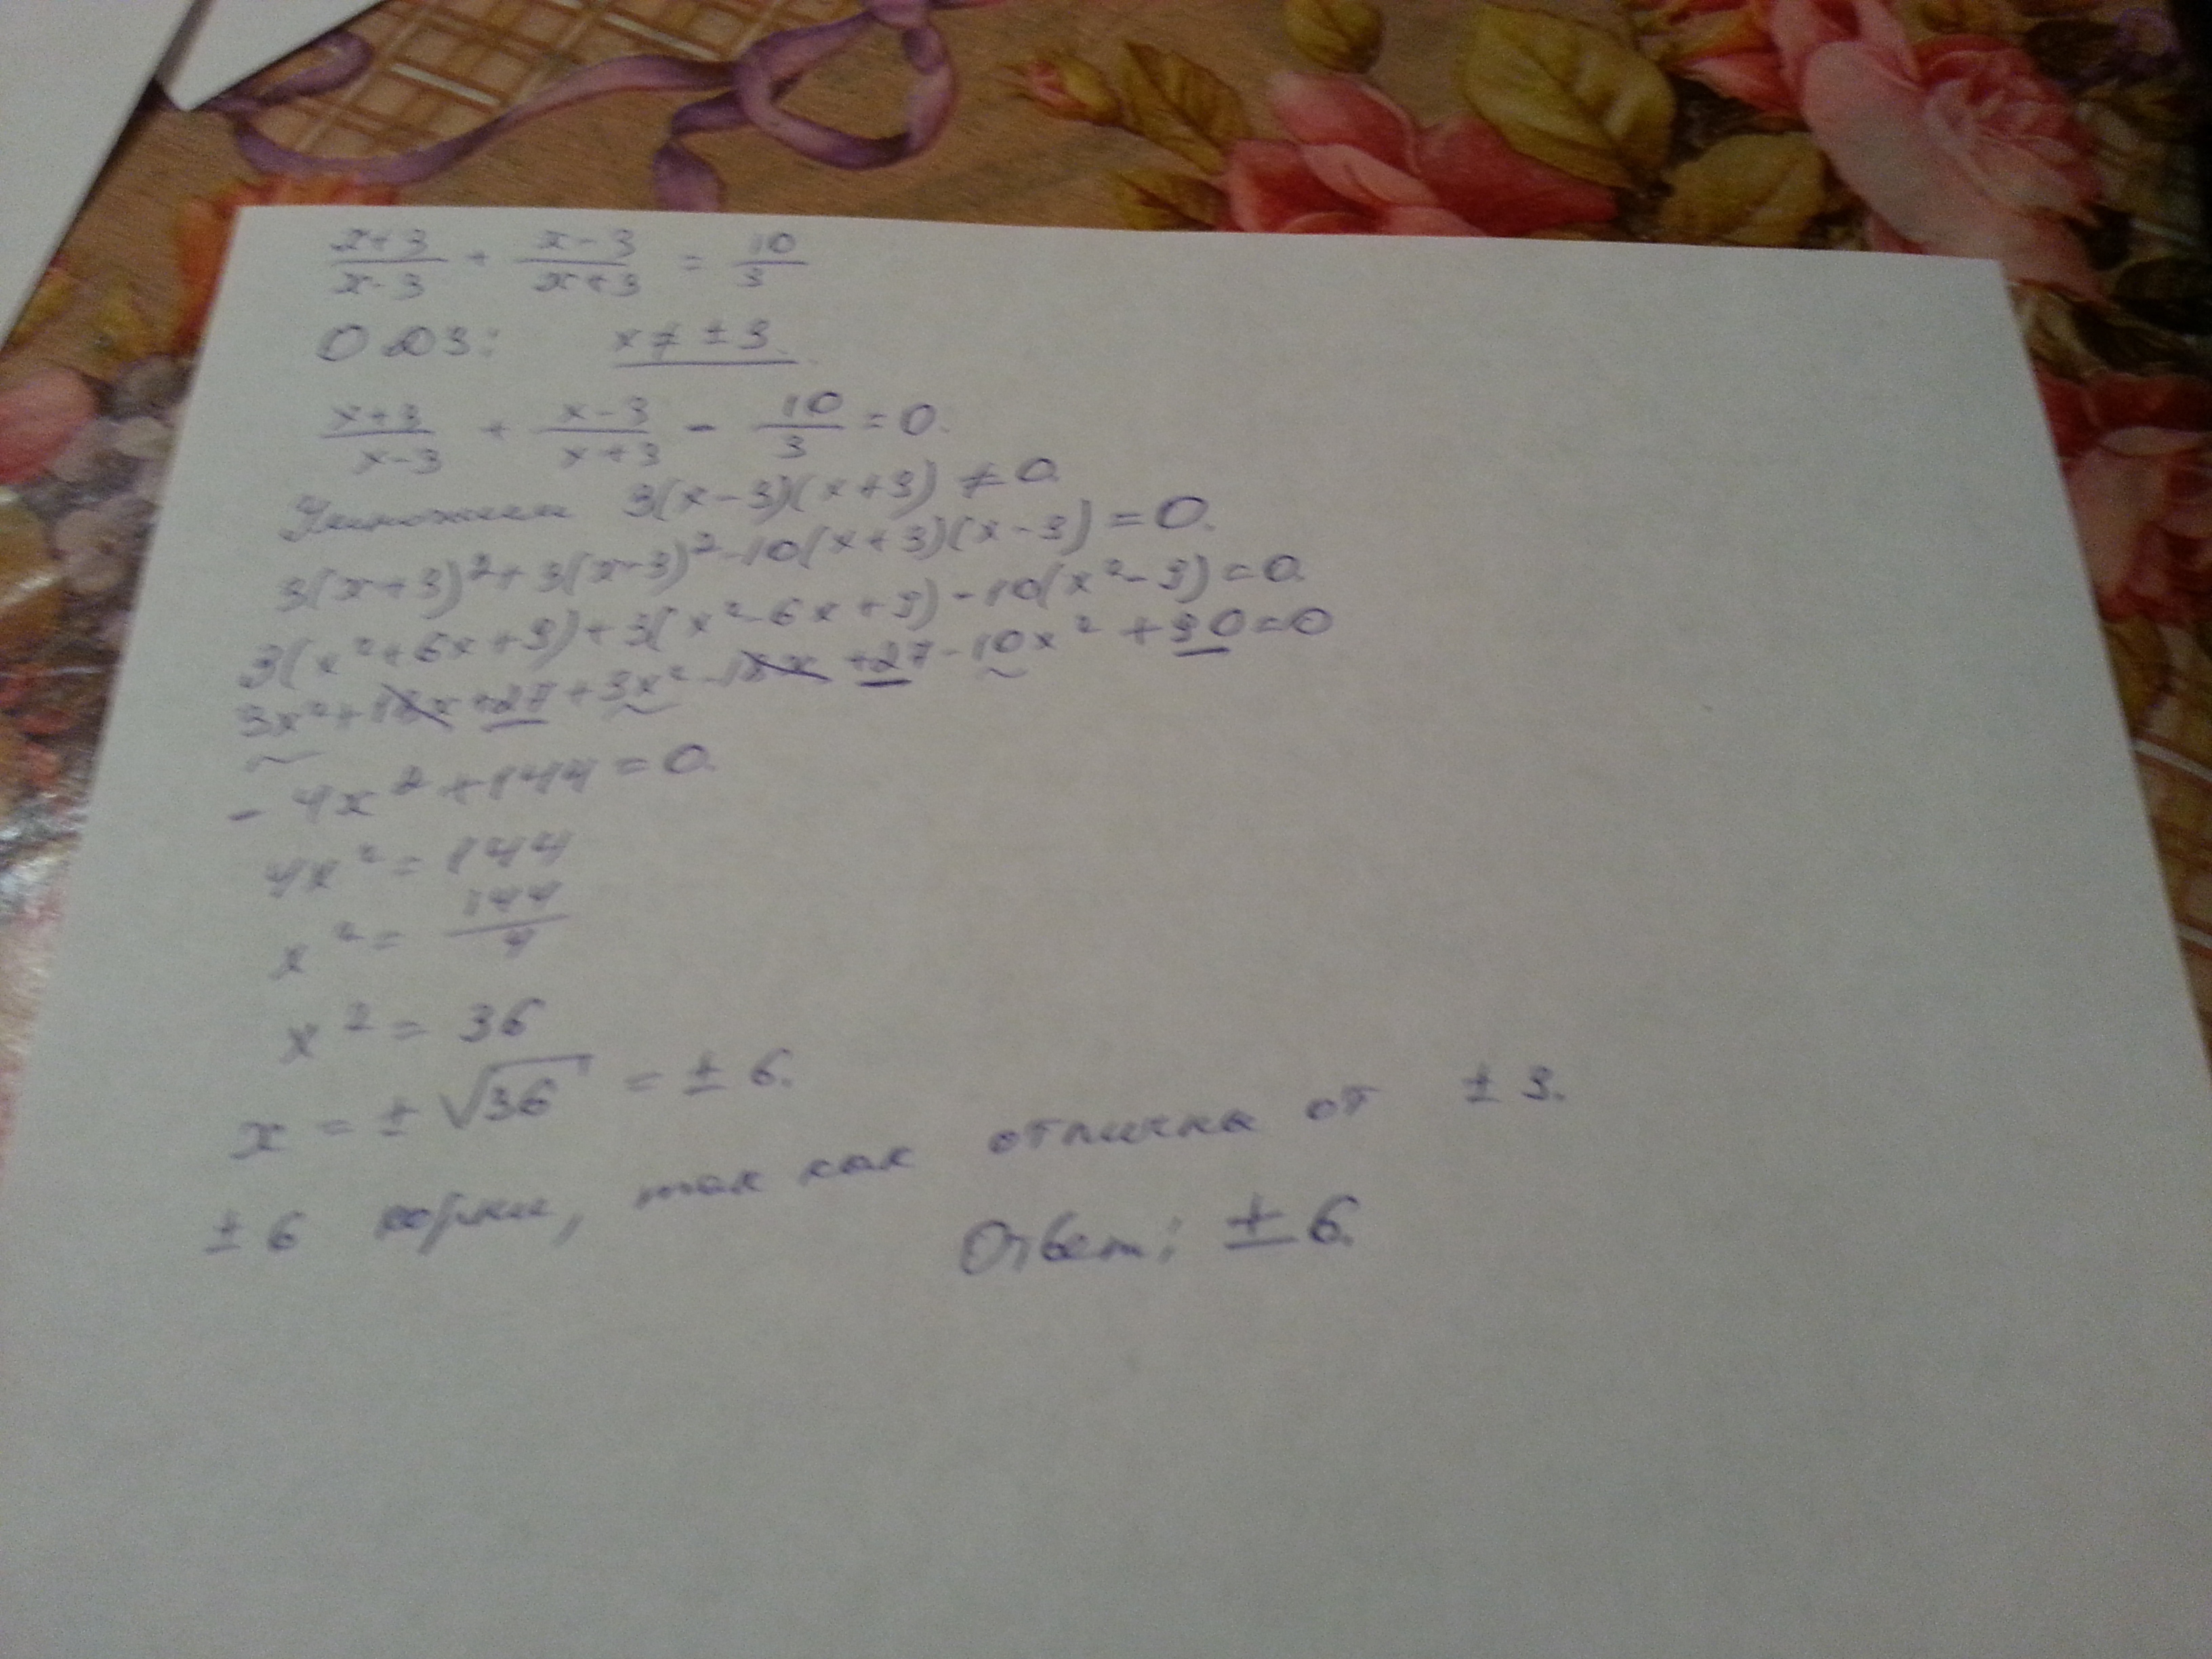 (x+3)/(x-3) + (x-3)/(x+3) = 10/3
ОДЗ: x ≠ ± 3.
(x+3)/(x-3) + (x-3)/(x+3) - 10/3 = 0.
Умножим 3(x-3)(x+3) ≠ 0.
3(x+3)² + 3(x-3)² - 10(x+3)(x-3) = 0.
3(x²+6x+9) + 3(x²-6x+9) - 10(x²-9) = 0.
3x² + 18x + 27 + 3x² - 18x + 27 - 10x² + 90 = 0
- 4x² + 144 = 0.
4x² = 144
x² = 144/4
x² = 36
x = ± √36 = ± 6.
± 6 корни, так как отличны от ± 3.
Ответ: ± 6.